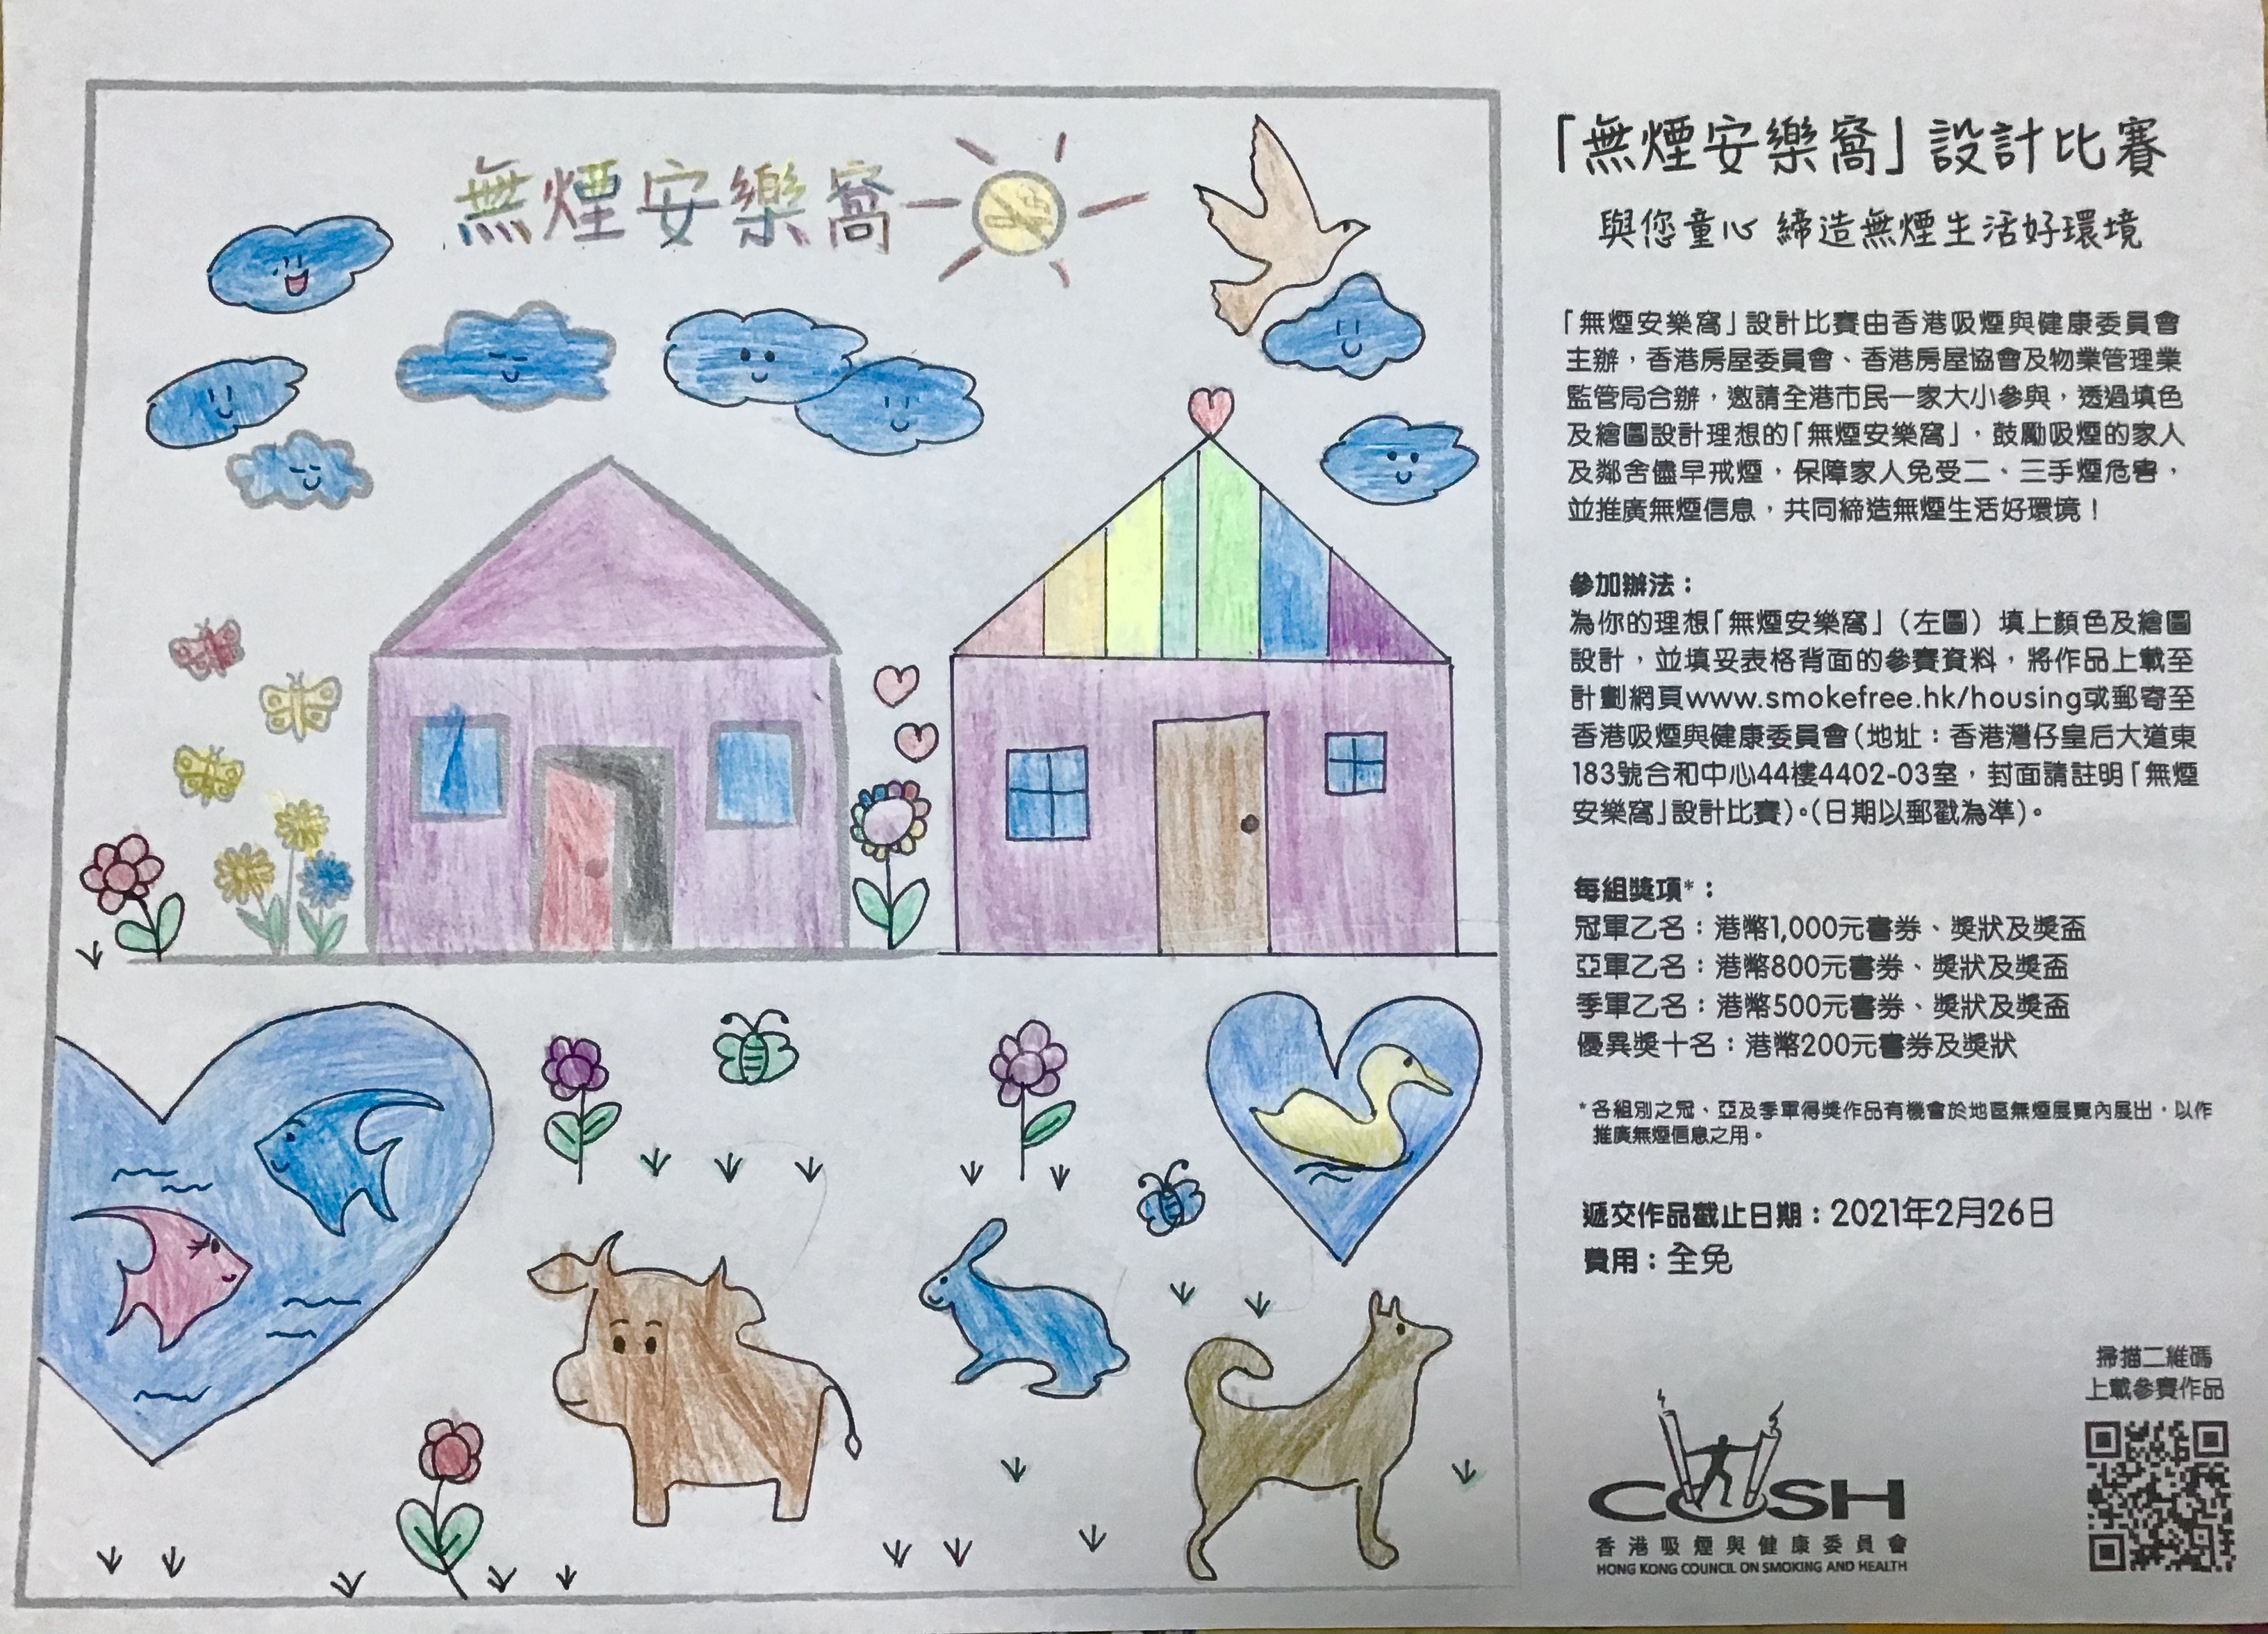 無煙安樂窩
「無煙安樂窩」設計比賽
與您童心 締造無煙生活好環境
「無煙安樂窩」設計比賽由香港吸煙與健康委員會
主辦，香港房屋委員會、香港房屋協會及物業管理業
監管局合辦，邀請全港市民一家大小參與，透過填色
及繪圖設計理想的「無煙安樂窩」，鼓勵吸煙的家人
及鄰舍儘早戒煙，保障家人免受二、三手煙危害，
並推廣無煙信息，共同締造無煙生活好環境！
參加辦法：
為你的理想「無煙安樂窩」（左圖）填上顏色及繪圖
設計，並填妥表格背面的參賽資料，將作品上載至
計劃網頁www.smokefree.hk/housing或郵寄至
香港吸煙與健康委員會（地址：香港灣仔皇后大道東
183號合和中心44樓4402-03室，封面請註明「無煙
安樂窩」設計比賽）。（日期以郵戳為準）。
每組獎項*：
冠軍乙名：港幣1,000元書券、獎狀及獎盃
亞軍乙名：港幣800元書券、獎狀及獎盃
季軍乙名：港幣500元書券、獎狀及獎盃
優異獎十名：港幣200元書券及獎狀
*各組別之冠、亞及季軍得獎作品有機會於地區無煙展覽內展出，以作
推廣無煙信息之用。
遞交作品截止日期：2021年2月26日
費用：全免
掃描二維碼
上載參賽作品
COSH
香港吸煙與健康委員會
HONG KONG COUNCIL ON SMOKING AND HEALTH